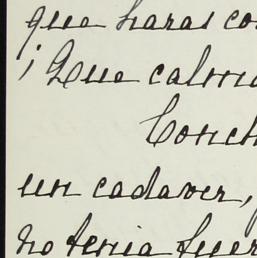 que haras co
¡Que calma
Conch
un cadaver,
no tenia fuer